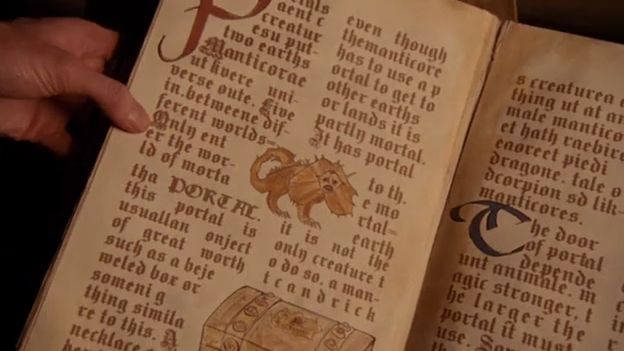 aent c
creatur
esu put-
two earths
Manticorae
ut kvere uni-
verse oute. Live
in.betweene dif-
ferent worlds-
Only ent
er the wor-
ld of morta
tha PORTAL.
this portal is
usuallan onject
of great worth
such as a beje
weled box or
someni g
thing simila
re to this. A
necklace
even though
themanticore
has to use a p
ortal to get to
other earths
or lands it is
partly mortal.
It has portal
to th.
e mo
rtal-
earth
it is not the
only creature t
o do so, a man-
t c a n d r i c k
s creaturea e
thing ut at an
male mantico
et hath raebri
eaorect piedi
dragone. tale o
dcorpion sd lik-
manticores.
The door
of portal
depende
unt animale. m
agic stronger, t
he larger the
portal it must
use. Som